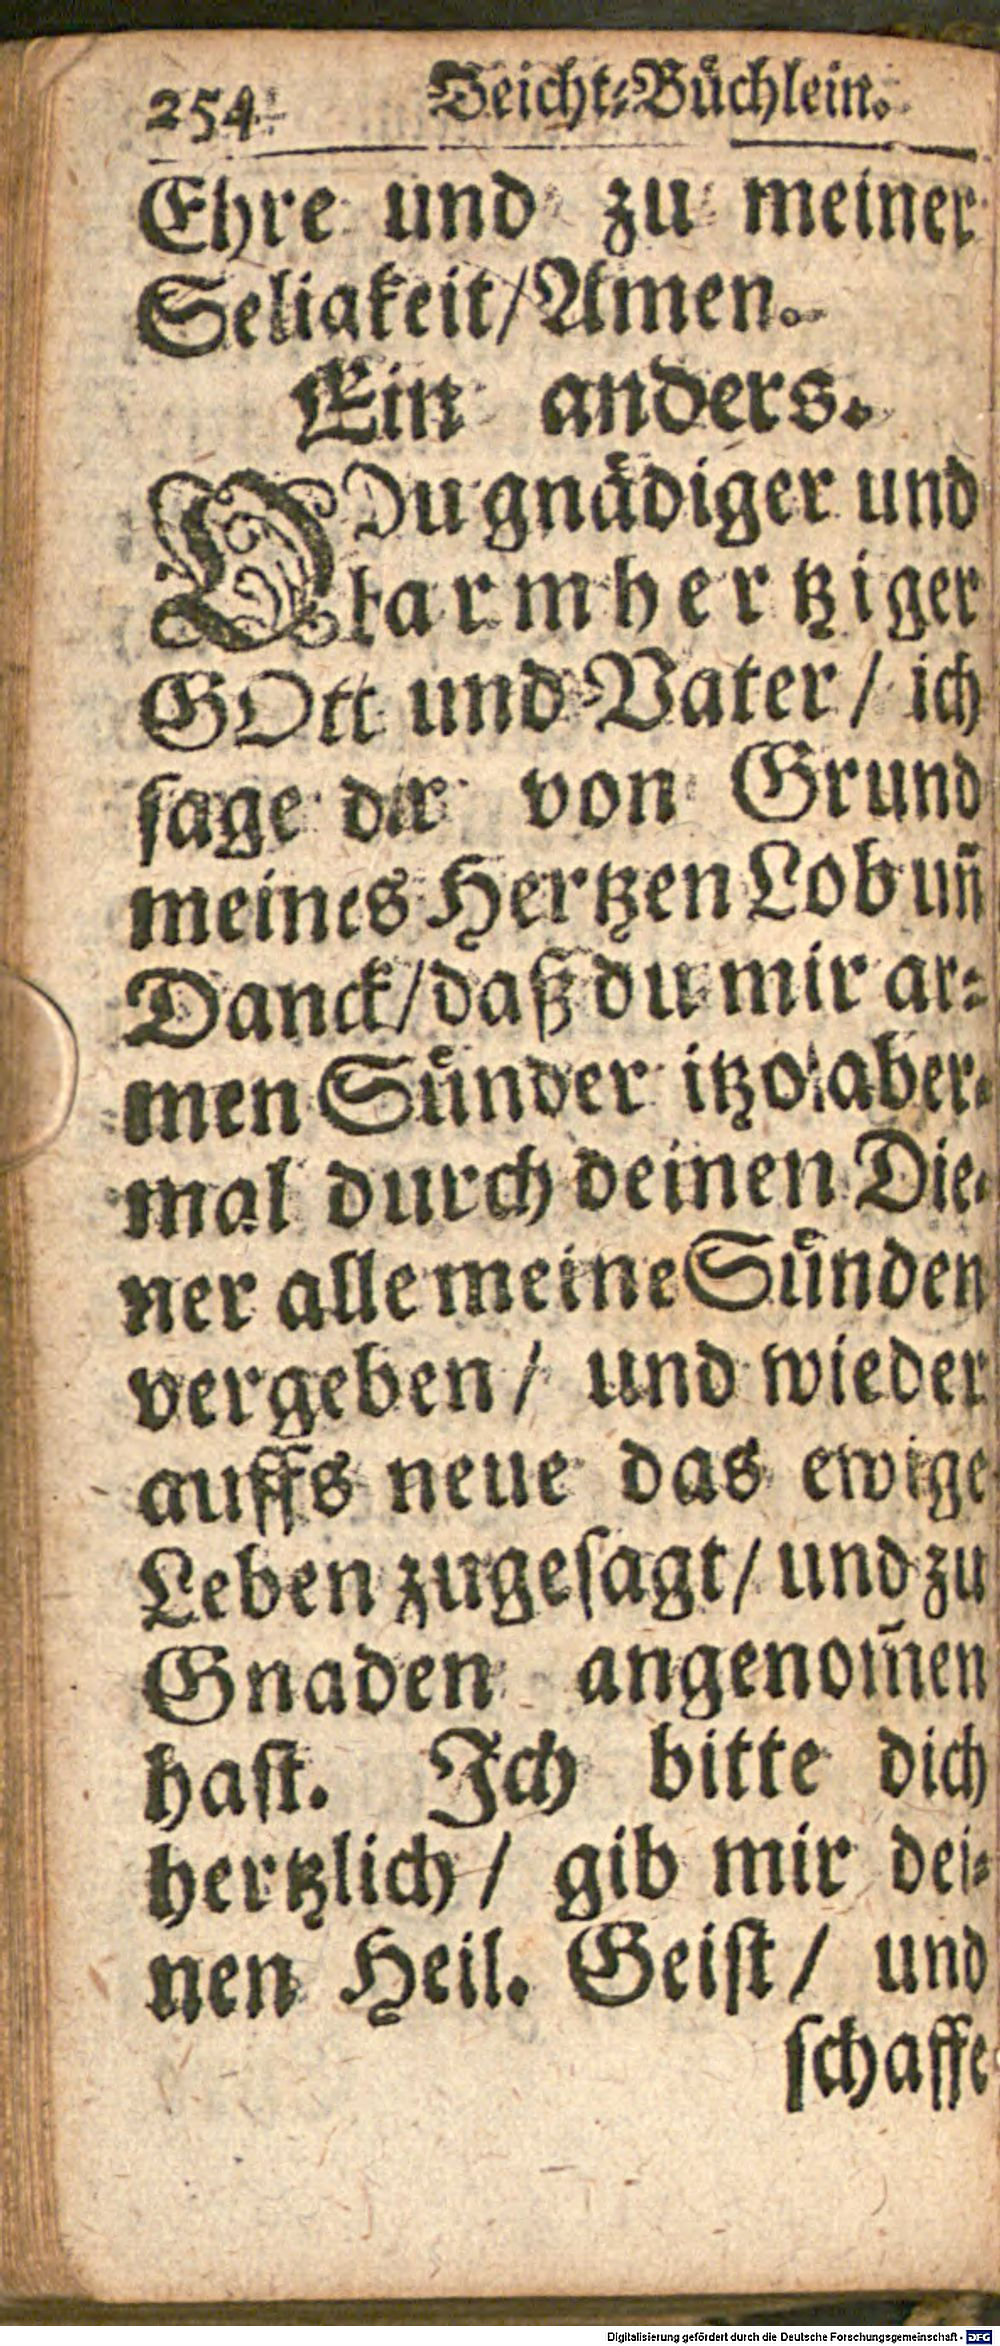 254 Beicht-Büchlein.
Ehre und zu meiner
Seligkeit/Amen.
Ein anders.
O Du gnädiger und
barmhertziger
GOtt und Vater / ich
sage dir von Grund
meines Hertzen Lob uñ
Danck/daß du mir ar-
men Sünder itzo aber-
mal durch deinen Die-
ner alle meine Sünden
vergeben / und wieder
auffs neue das ewige
Leben zugesagt/und zu
Gnaden angenom̃en
hast. Ich bitte dich
hertzlich / gib mir dei-
nen Heil. Geist / und
schaffe
Digitalisierung gefördert durch die Deutsche Forschungsgemeinschaft - DFG